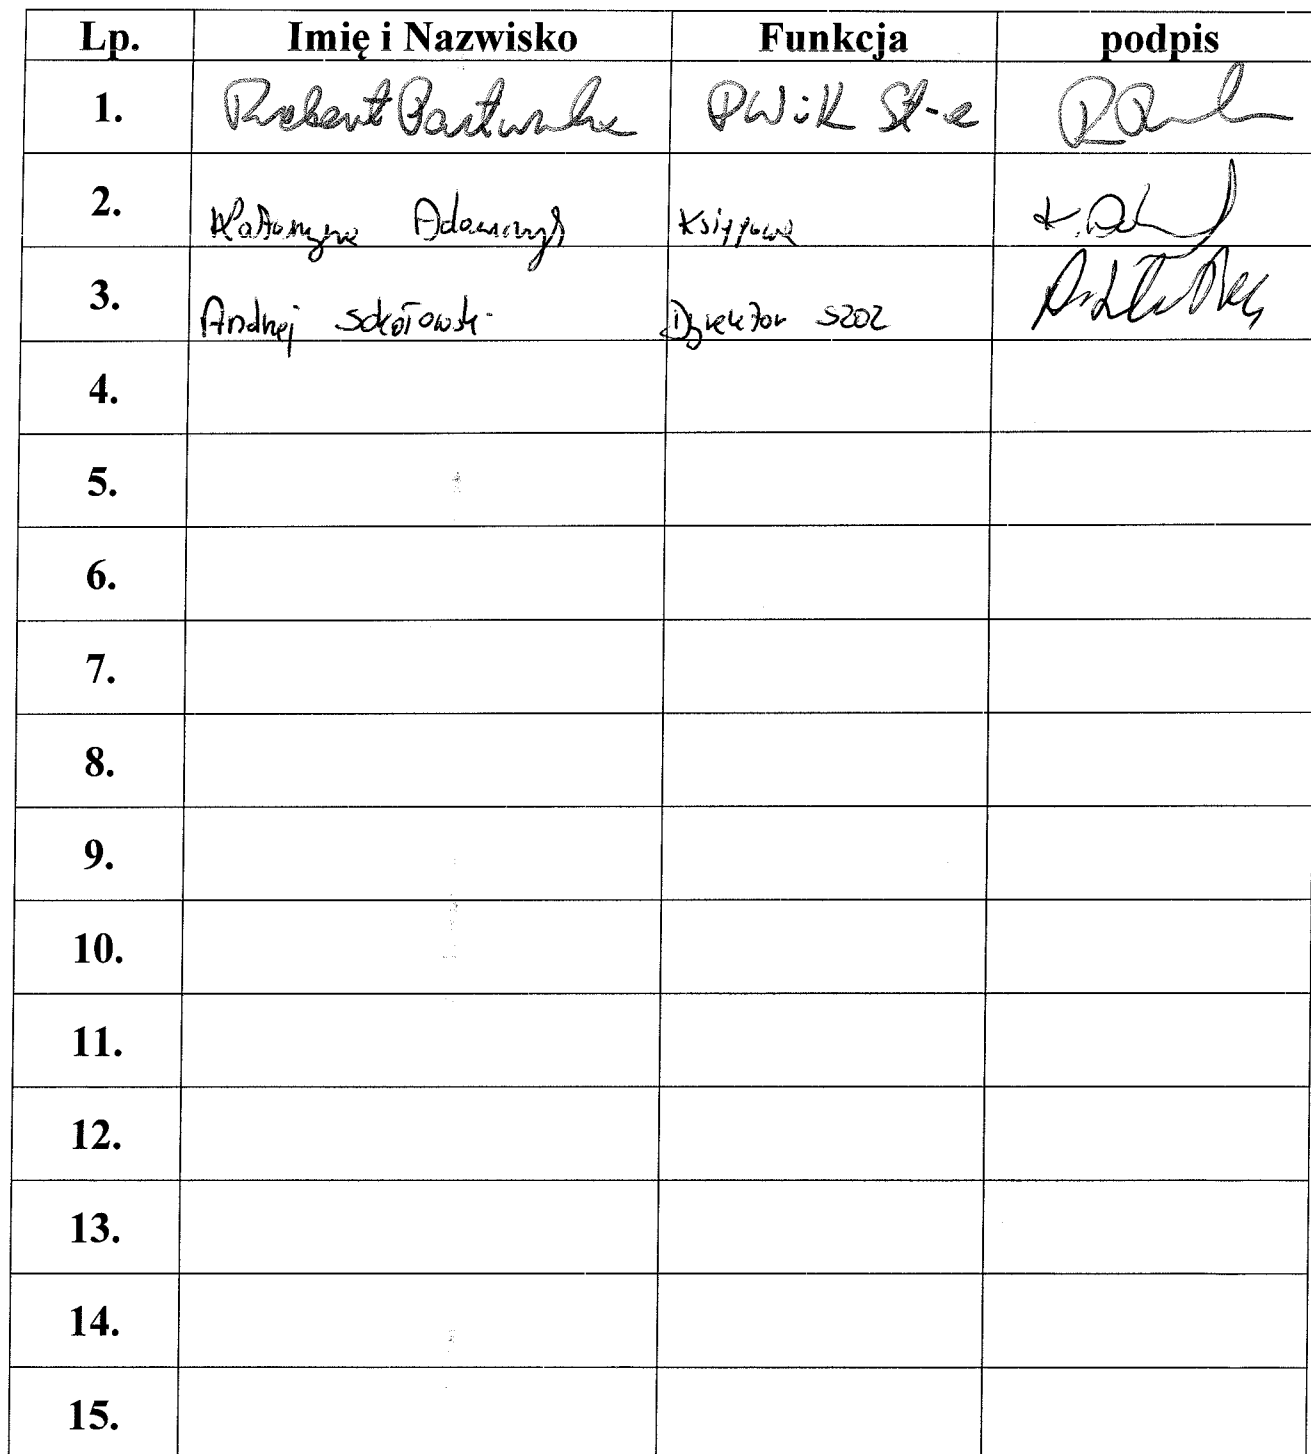 Lp. Imię i Nazwisko Funkcja podpis
1. Robert PWiK St-e
2. Katarzyna Adamczyk Księgowa
3. Andrzej Sokołowski Dyrektor SZOZ
4.
5.
6.
7.
8.
9.
10.
11.
12.
13.
14.
15.